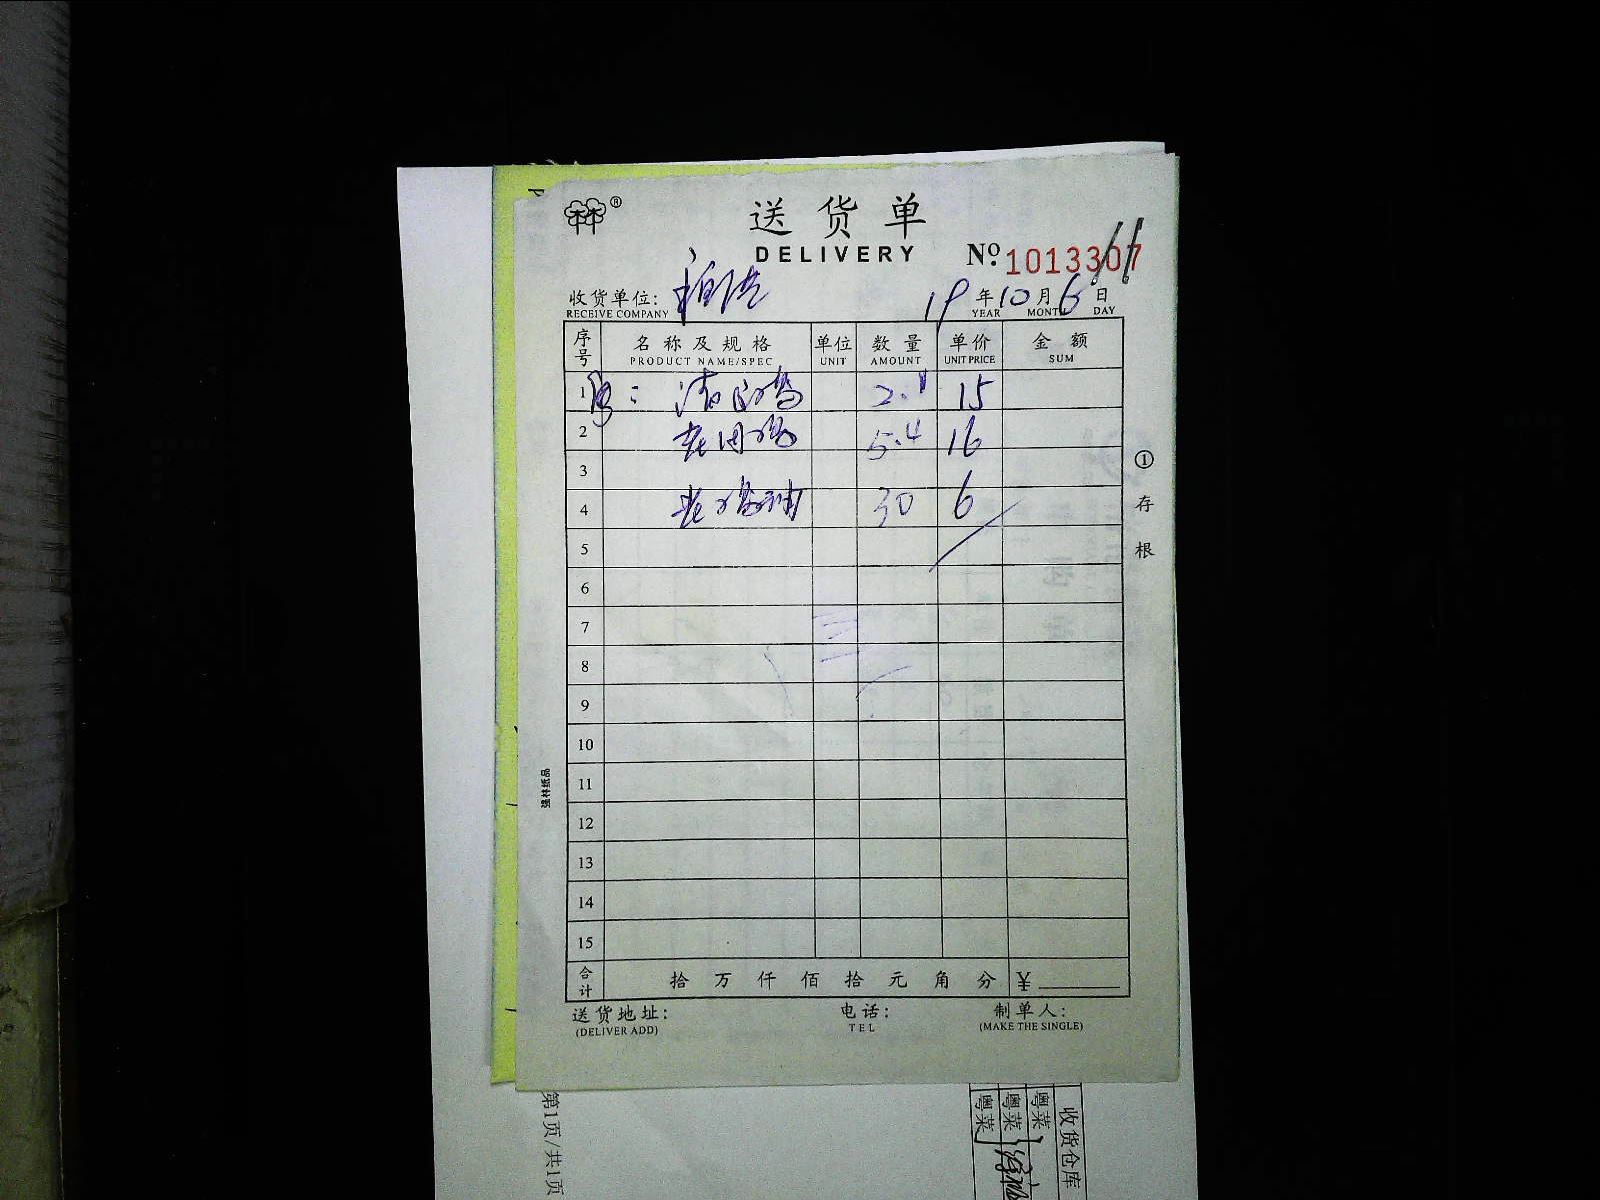 ®
送货单
DELIVERY Nº. 1013307
收货单位:
RECEIVE COMPANY
19 年 10 月 6 日
YEAR MONTH DAY
序号 名称及规格 单位 数量 单价 金额
PRODUCT NAME/SPEC UNIT AMOUNT UNIT PRICE SUM
1 : 15
2 5.4 16
3
4 30 6
5
6
7
8
9
10
11
12
13
14
15
合计 拾 万 仟 佰 拾 元 角 分 ¥
送货地址: 电话: 制单人:
(DELIVER ADD) TEL (MAKE THE SINGLE)
① 存根
强林纸品
第1页/共1页
收货仓库
粤菜
粤菜
粤菜